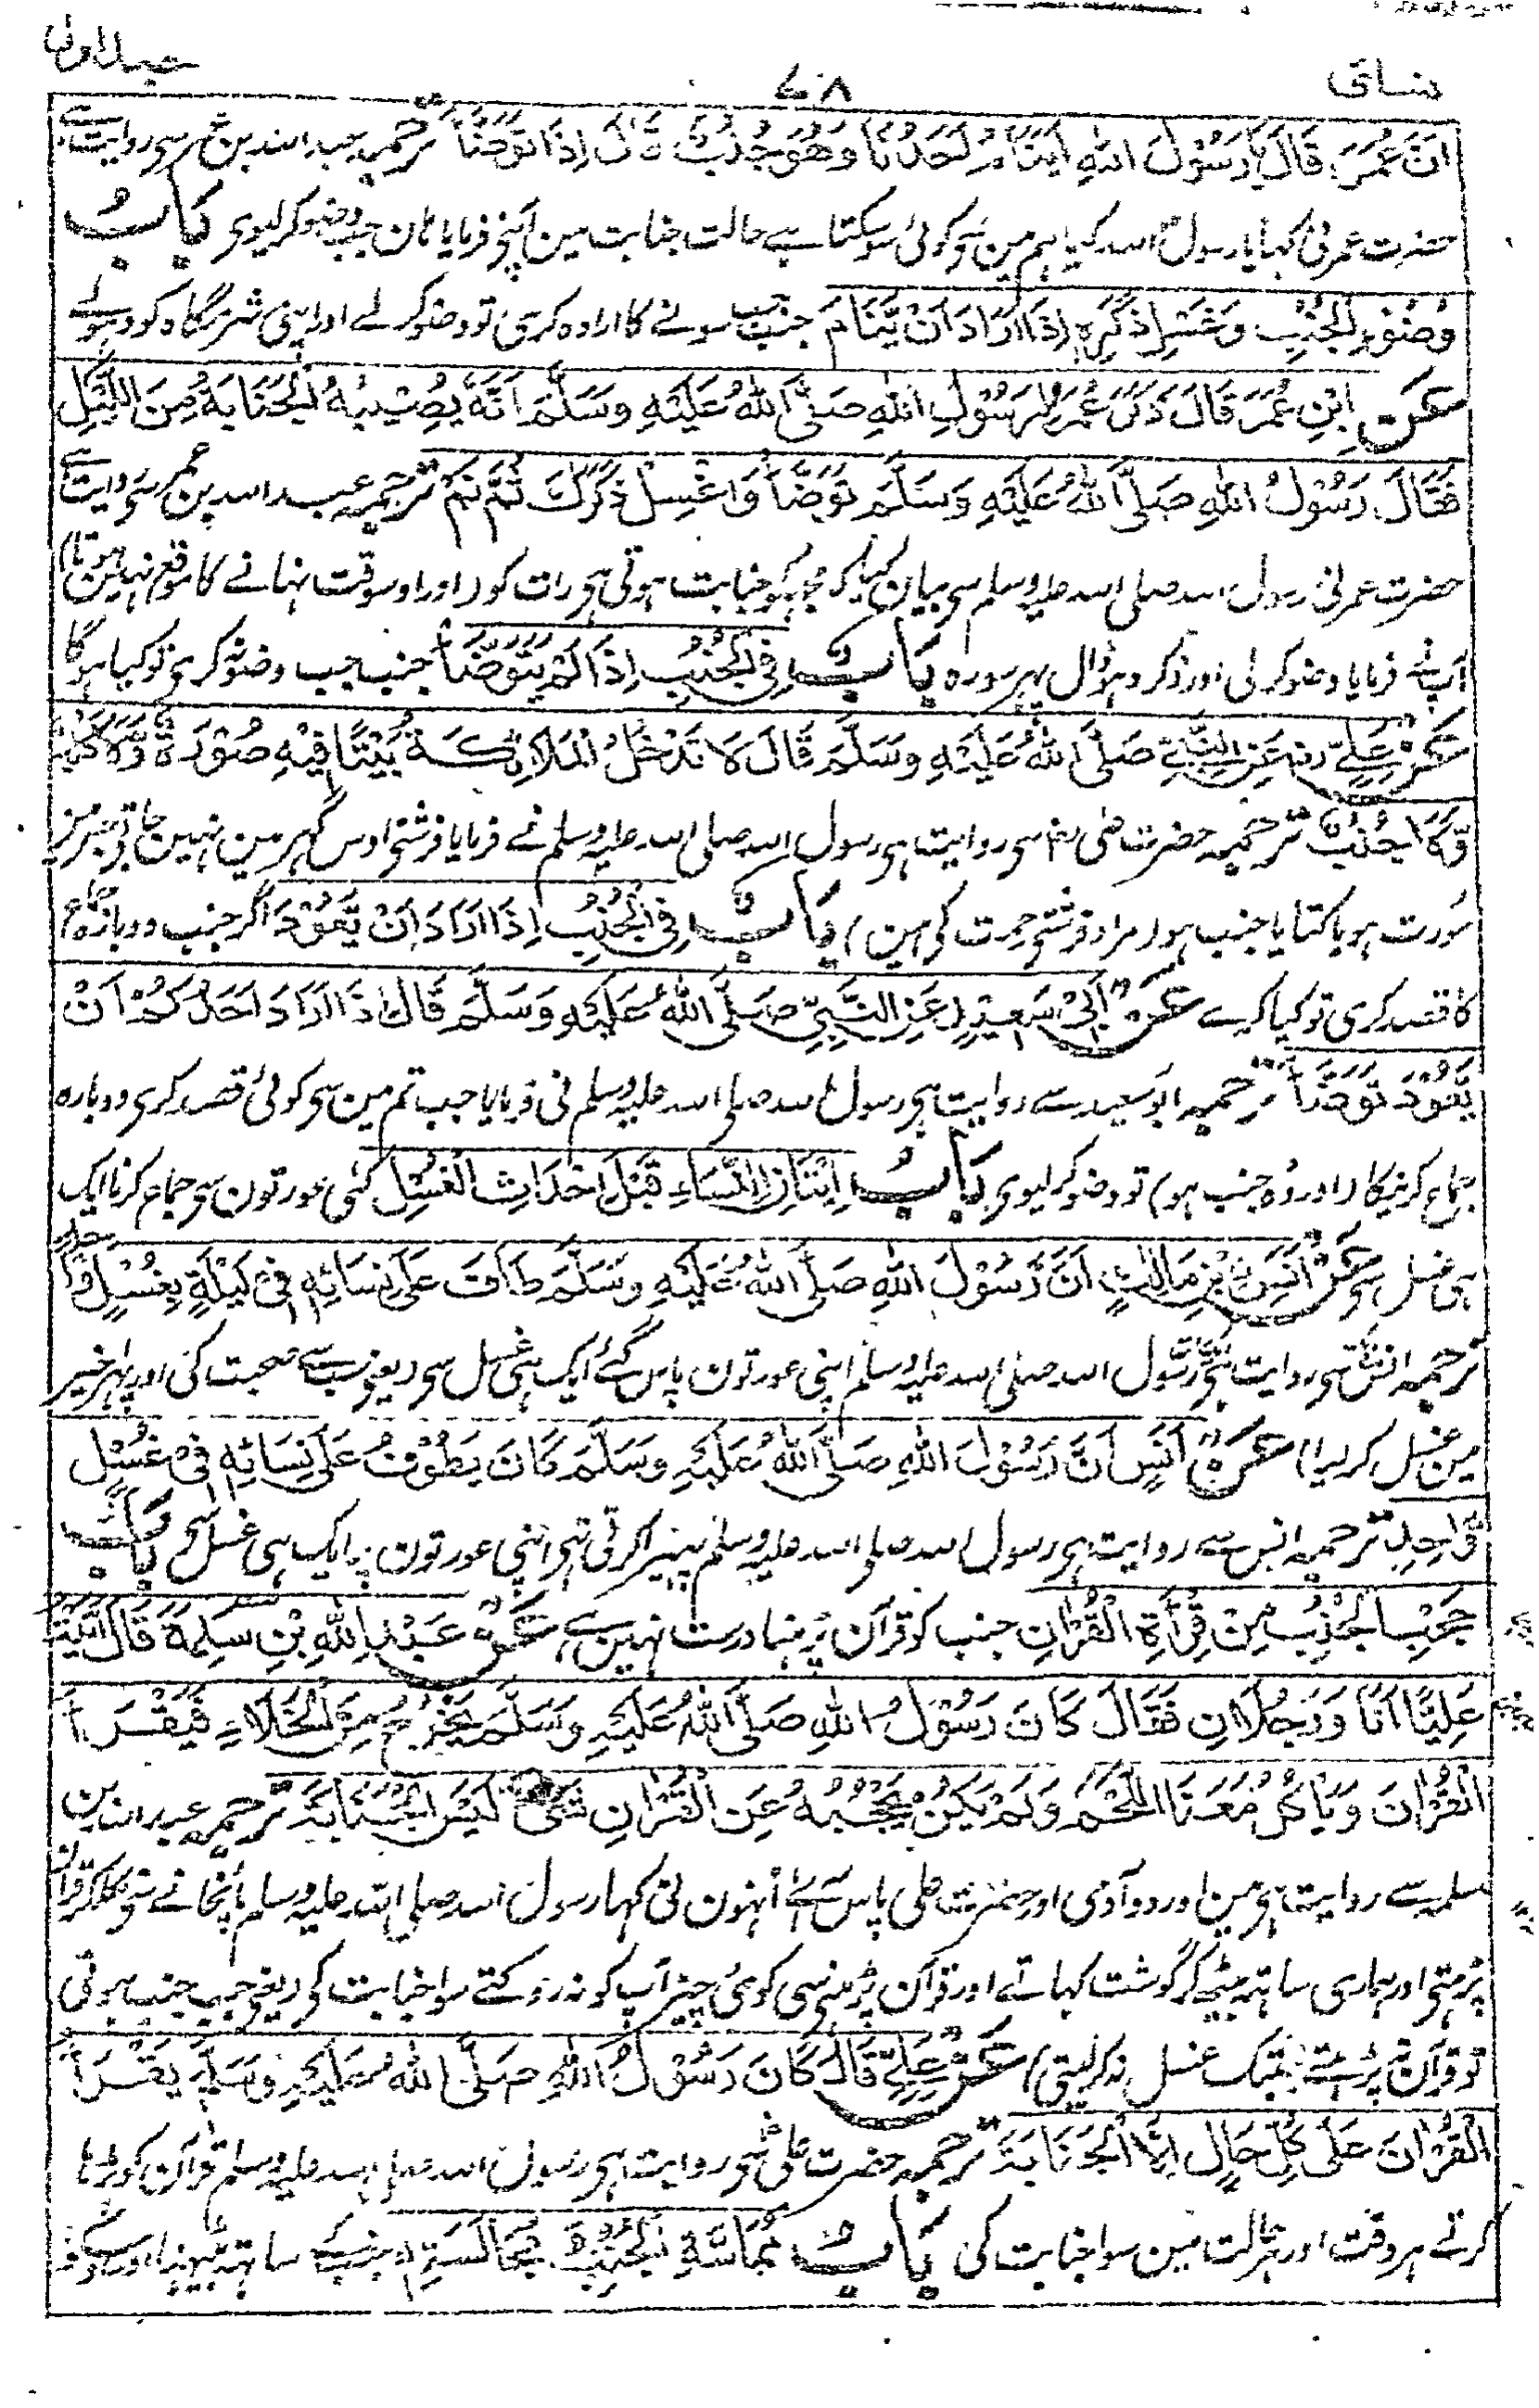 نسائی ۷۸ جلد اول
اَنَّ عُمَرَ قَالَ يَا رَسُوْلَ اللهِ اَيَنَامُ اَحَدُنَا وَهُوَ جُنُبٌ قَالَ اِذَا تَوَضَّأَ ترجمہ عبد اللہ بن عمر سے روایت ہے
حضرت عمر نی کہا یا رسول اللہ کیا ہم مین سی کوئی سو سکتا ہے حالت جنابت مین آپنی فرمایا ہان جب وضو کر لیوی بَابُ
وُضُوْءِ الْجُنُبِ وَغَسْلِ ذَكَرِهٖ اِذَا اَرَادَ اَنْ يَّنَامَ جنب جب سونے کا ارادہ کری تو وضو کر لے اور اپنی شرمگاہ کو دہولے
عَنِ ابْنِ عُمَرَ قَالَ ذَكَرَ عُمَرُ لِرَسُوْلِ اللهِ صَلَّى اللهُ عَلَيْهِ وَسَلَّمَ اَنَّهٗ يُصِيْبُهُ الْجَنَابَةُ مِنَ اللَّيْلِ
فَقَالَ رَسُوْلُ اللهِ صَلَّى اللهُ عَلَيْهِ وَسَلَّمَ تَوَضَّأْ وَاغْسِلْ ذَكَرَكَ ثُمَّ نَمْ ترجمہ عبد اللہ بن عمر سی روایت ہے
حضرت عمر نی رسول اللہ صلی اللہ علیہ وسلم سی بیان کیا کہ مجہکو جنابت ہوتی ہی رات کو (اور اوسوقت نہانے کا موقع نہین ہوتا)
آپ نے فرمایا وضو کر لی اور ذکر دہو ڈال پہر سو رہ بَابٌ فِي الْجُنُبِ اِذَا لَمْ يَتَوَضَّأْ جنب جب وضو نہ کری تو کیا ہوگا
عَنْ عَلِيٍّ رضہ عَنِ النَّبِيِّ صَلَّى اللهُ عَلَيْهِ وَسَلَّمَ قَالَ لَا تَدْخُلُ الْمَلَائِكَةُ بَيْتًا فِيْهِ صُوْرَةٌ وَّلَا كَلْبٌ
وَّلَا جُنُبٌ ترجمہ حضرت علی رضہ سی روایت ہی رسول اللہ صلی اللہ علیہ وسلم نے فرمایا فرشتی اوس گہر مین نہین جاتی جس مین
مورت ہو یا کتا یا جنب ہو (مراد فرشتی رحمت کی ہین) بَابٌ فِي الْجُنُبِ اِذَا اَرَادَ اَنْ يَّعُوْدَ اگر جنب دوبارہ جماع
کا قصد کری تو کیا کرے عَنْ اَبِيْ سَعِيْدٍ عَنِ النَّبِيِّ صَلَّى اللهُ عَلَيْهِ وَسَلَّمَ قَالَ اِذَا اَرَادَ اَحَدُكُمْ اَنْ
يَّعُوْدَ تَوَضَّأَ ترجمہ ابو سعید سے روایت ہی رسول اللہ صلی اللہ علیہ وسلم نی فرمایا جب تم مین سی کوئی قصد کری دوبارہ
جماع کرنیکا (اور وہ جنب ہو) تو وضو کر لیوی بَابُ اِتْيَانِ النِّسَاءِ قَبْلَ اِحْدَاثِ الْغُسْلِ کئی عورتون سی جماع کرنا ایک
ہی غسل سی عَنْ اَنَسِ بْنِ مَالِكٍ اَنَّ رَسُوْلَ اللهِ صَلَّى اللهُ عَلَيْهِ وَسَلَّمَ طَافَ عَلٰى نِسَائِهٖ فِيْ لَيْلَةٍ بِغُسْلٍ وَّاحِدٍ
ترجمہ انس سی روایت ہی رسول اللہ صلی اللہ علیہ وسلم اپنی عورتون پاس گئے ایک ہی غسل سی (یعنی سب سے صحبت کی اور پہر اخیر
مین غسل کر لیا) عَنْ اَنَسٍ اَنَّ رَسُوْلَ اللهِ صَلَّى اللهُ عَلَيْهِ وَسَلَّمَ كَانَ يَطُوْفُ عَلٰى نِسَائِهٖ فِيْ غُسْلٍ
وَّاحِدٍ ترجمہ انس سے روایت ہی رسول اللہ صلی اللہ علیہ وسلم پہیرا کرتی تہی اپنی عورتون پر ایک ہی غسل سی بَابُ
حَجْبِ الْجُنُبِ مِنْ قِرَاءَةِ الْقُرْاٰنِ جنب کو قرآن پڑہنا درست نہین ہے عَنْ عَبْدِ اللهِ بْنِ سَلِمَةَ قَالَ اَتَيْتُ
عَلِيًّا اَنَا وَرَجُلَانِ فَقَالَ كَانَ رَسُوْلُ اللهِ صَلَّى اللهُ عَلَيْهِ وَسَلَّمَ يَخْرُجُ مِنَ الْخَلَاءِ فَيَقْرَأُ
الْقُرْاٰنَ وَيَأْكُلُ مَعَنَا اللَّحْمَ وَلَمْ يَكُنْ يَحْجُبُهُ عَنِ الْقُرْاٰنِ شَيْءٌ لَيْسَ الْجَنَابَةَ ترجمہ عبد اللہ بن
سلمہ سے روایت ہی مین اور دو آدمی اور حضرت علی پاس آئے اُنہون نی کہا رسول اللہ صلی اللہ علیہ وسلم پائخانے سی نکلکر قرآن
پڑہتی اور ہماری ساتہہ بیٹہہ کر گوشت کہاتے اور قرآن پڑہنی سی کوئی چیز آپ کو نہ روکتے سوا جنابت کی (یعنی جب جنب ہوتی
تو قرآن نہ پڑہتے جبتک غسل نہ کر لیتی) عَنْ عَلِيٍّ قَالَ كَانَ رَسُوْلُ اللهِ صَلَّى اللهُ عَلَيْهِ وَسَلَّمَ يَقْرَأُ
الْقُرْاٰنَ عَلٰى كُلِّ حَالٍ اِلَّا الْجَنَابَةَ ترجمہ حضرت علی سی روایت ہی رسول اللہ صلی اللہ علیہ وسلم قرآن کو پڑہا
کرتے ہر وقت اور ہر حالت مین سوا جنابت کی بَابُ مُمَاسَّةِ الْجُنُبِ وَمُجَالَسَتِهٖ جنب کے ساتہہ بیٹہنا اور